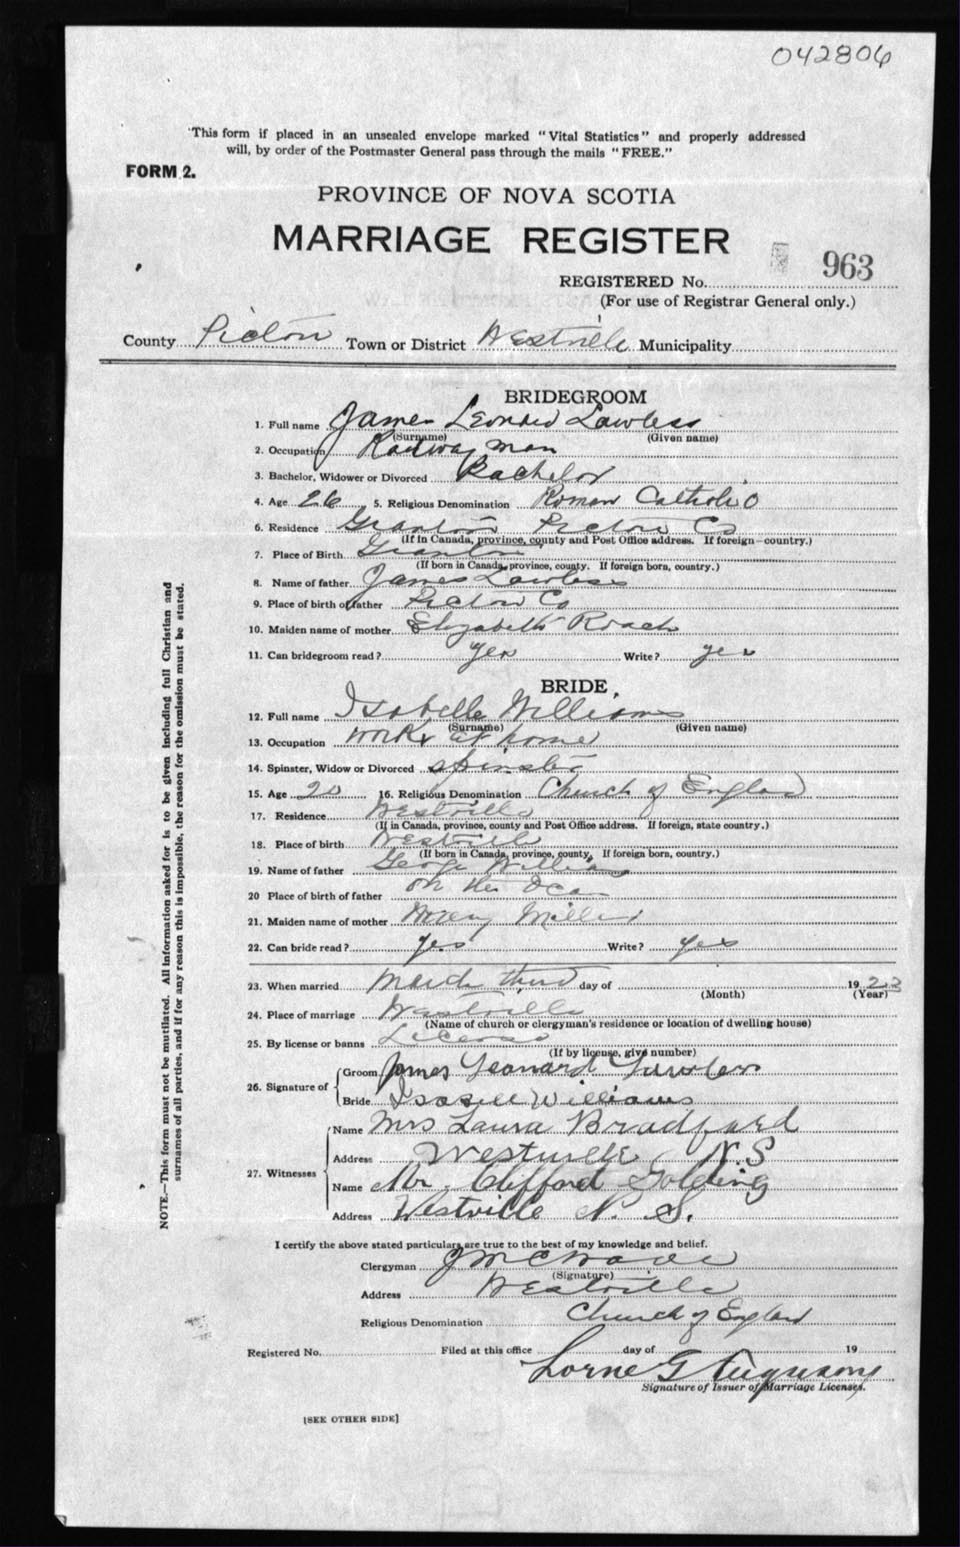 042806
This form if placed in an unsealed envelope marked "Vital Statistics" and properly addressed
will, by order of the Postmaster General pass through the mails "FREE."
FORM 2.
PROVINCE OF NOVA SCOTIA
MARRIAGE REGISTER
REGISTERED No. 963
(For use of Registrar General only.)
County Pictou Town or District Westville Municipality
BRIDEGROOM
1. Full name James Leonard Lawless
(Surname) (Given name)
2. Occupation Railway man
3. Bachelor, Widower or Divorced Bachelor
4. Age 26 5. Religious Denomination Roman Catholic
6. Residence Granton Pictou Co
(If in Canada, province, county and Post Office address. If foreign country.)
7. Place of Birth Granton
(If born in Canada, province, county. If foreign born, country.)
8. Name of father James Lawless
9. Place of birth of father Pictou Co
10. Maiden name of mother Elizabeth Roach
11. Can bridegroom read? yes Write? yes
BRIDE
12. Full name Isabelle Williams
(Surname) (Given name)
13. Occupation works at home
14. Spinster, Widow or Divorced Spinster
15. Age 20 16. Religious Denomination Church of England
17. Residence Westville
(If in Canada, province, county and Post Office address. If foreign, state country.)
18. Place of birth Westville
(If born in Canada, province, county, If foreign born, country.)
19. Name of father George Williams
20 Place of birth of father on the Ocan
21. Maiden name of mother Mary Miller
22. Can bride read? yes Write? yes
23. When married March third day of 1923
(Month) (Year)
24. Place of marriage Westville
(Name of church or clergyman's residence or location of dwelling house)
25. By license or banns License
(If by license, give number)
26. Signature of Groom James Leonard Lawless
Bride Isabell Williams
27. Witnesses Name Mrs Laura Bradford
Address Westville N.S
Name Mr Clifford Golding
Address Westville N. S.
I certify the above stated particulars are true to the best of my knowledge and belief.
Clergyman
(Signature)
Address Westville
Religious Denomination Church of England
Registered No. Filed at this office day of 19
Lorne G Ferguson
Signature of Issuer of Marriage Licenses.
[SEE OTHER SIDE]
NOTE.—This form must not be mutilated. All information asked for is to be given including full Christian and
surnames of all parties, and if for any reason this is impossible, the reason for the omission must be stated.